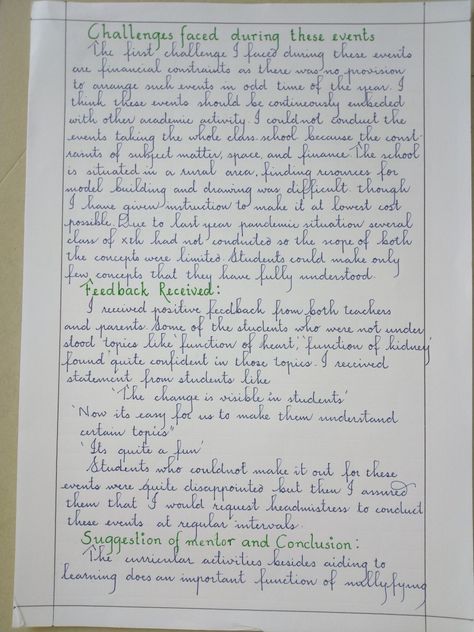 Challenges faced during these events
The first challenge I faced during these events
are financial constraints as there was no provision
to arrange such events in odd time of the year. I
think these events should be continuously embeded
with other academic activity. I couldnot conduct the
events taking the whole class school because the const-
raints of subject matter, space, and finance. The school
is situated in a rural area, finding resources for
model building and drawing was difficult though
I have given instruction to make it at lowest cost
possible. Due to last year pandemic situation several
class of xth had not conducted so the scope of both
the concepts were limited. Students could make only
few concepts that they have fully understood.
Feedback Received:
I received positive feedback from both teachers
and parents. Some of the students who were not under
stood topics like 'function of heart', 'function of kidney'
found quite confident in those topics. I received
statement from students like
'The change is visible in students'
'Now its easy for us to make them understand
certain topics"
'Its quite a fun'
Students who couldnot make it out for these
events were quite disappointed but then I assured
them that I would request headmistress to conduct
these events at regular intervals.
Suggestion of mentor and Conclusion:
The curricular activities besides aiding to
learning does an important function of nullyfying